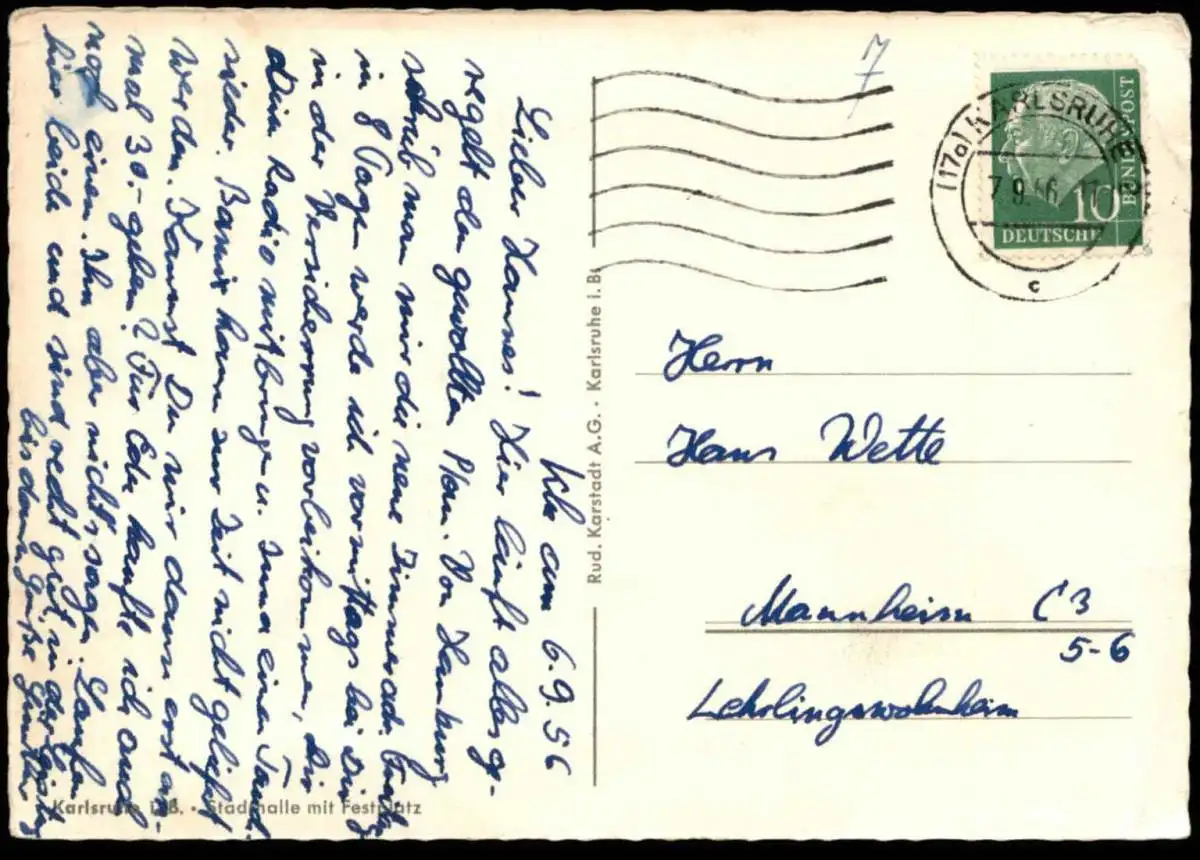 Khe am 6.9.56
Lieber Hannes! Hier läuft alles ge-
regelt den gewollten Plan. Von Hamburg
schrieb man mir die neue Zimmeradr.
in 8 Tagen werde ich vormittags bei Dir
in der Versicherung vorbeikommen, Dir
Dein Radio mitbringen u. Inma einen Tand.
wieder. Bamix kann zur Zeit nicht geliefert
werden. Kannst Du mir dann erst an-
mal 30.- geben? Für Ede kaufte ich auch
noch einen. Ihm aber nichts sagen. Laufen
hier beide und sind recht gut in der
bis dann Grüße Günther
7
(17a) KARLSRUHE
7.9.56. 17
c
10
DEUTSCHE
BUNDESPOST
Herrn
Hans Wette
Mannheim C3
5-6
Lehrlingswohnheim
Rud. Karstadt A.G. • Karlsruhe i. B.
Karlsruhe i. B. • Stadthalle mit Festplatz